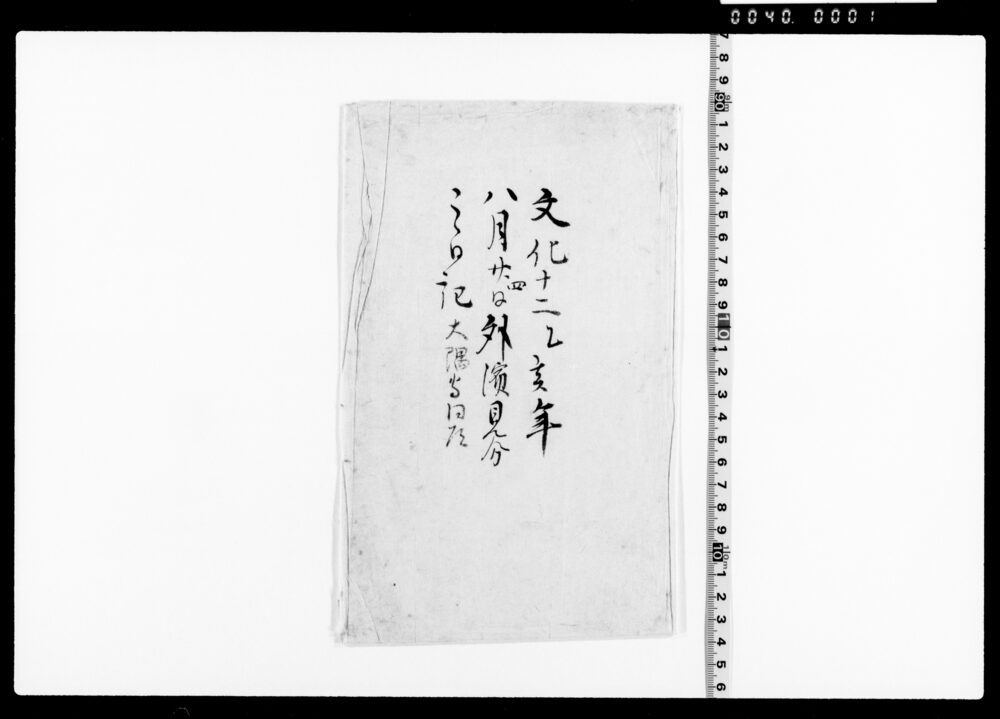 0040. 0001
文化十二乙亥年
八月廿四日郊濱見分
之日記 大隅守同道
7 8 9 90 1 2 3 4 5 6 7 8 9 10 1 2 3 4 5 6 7 8 9 10 1 2 3 4 5 6